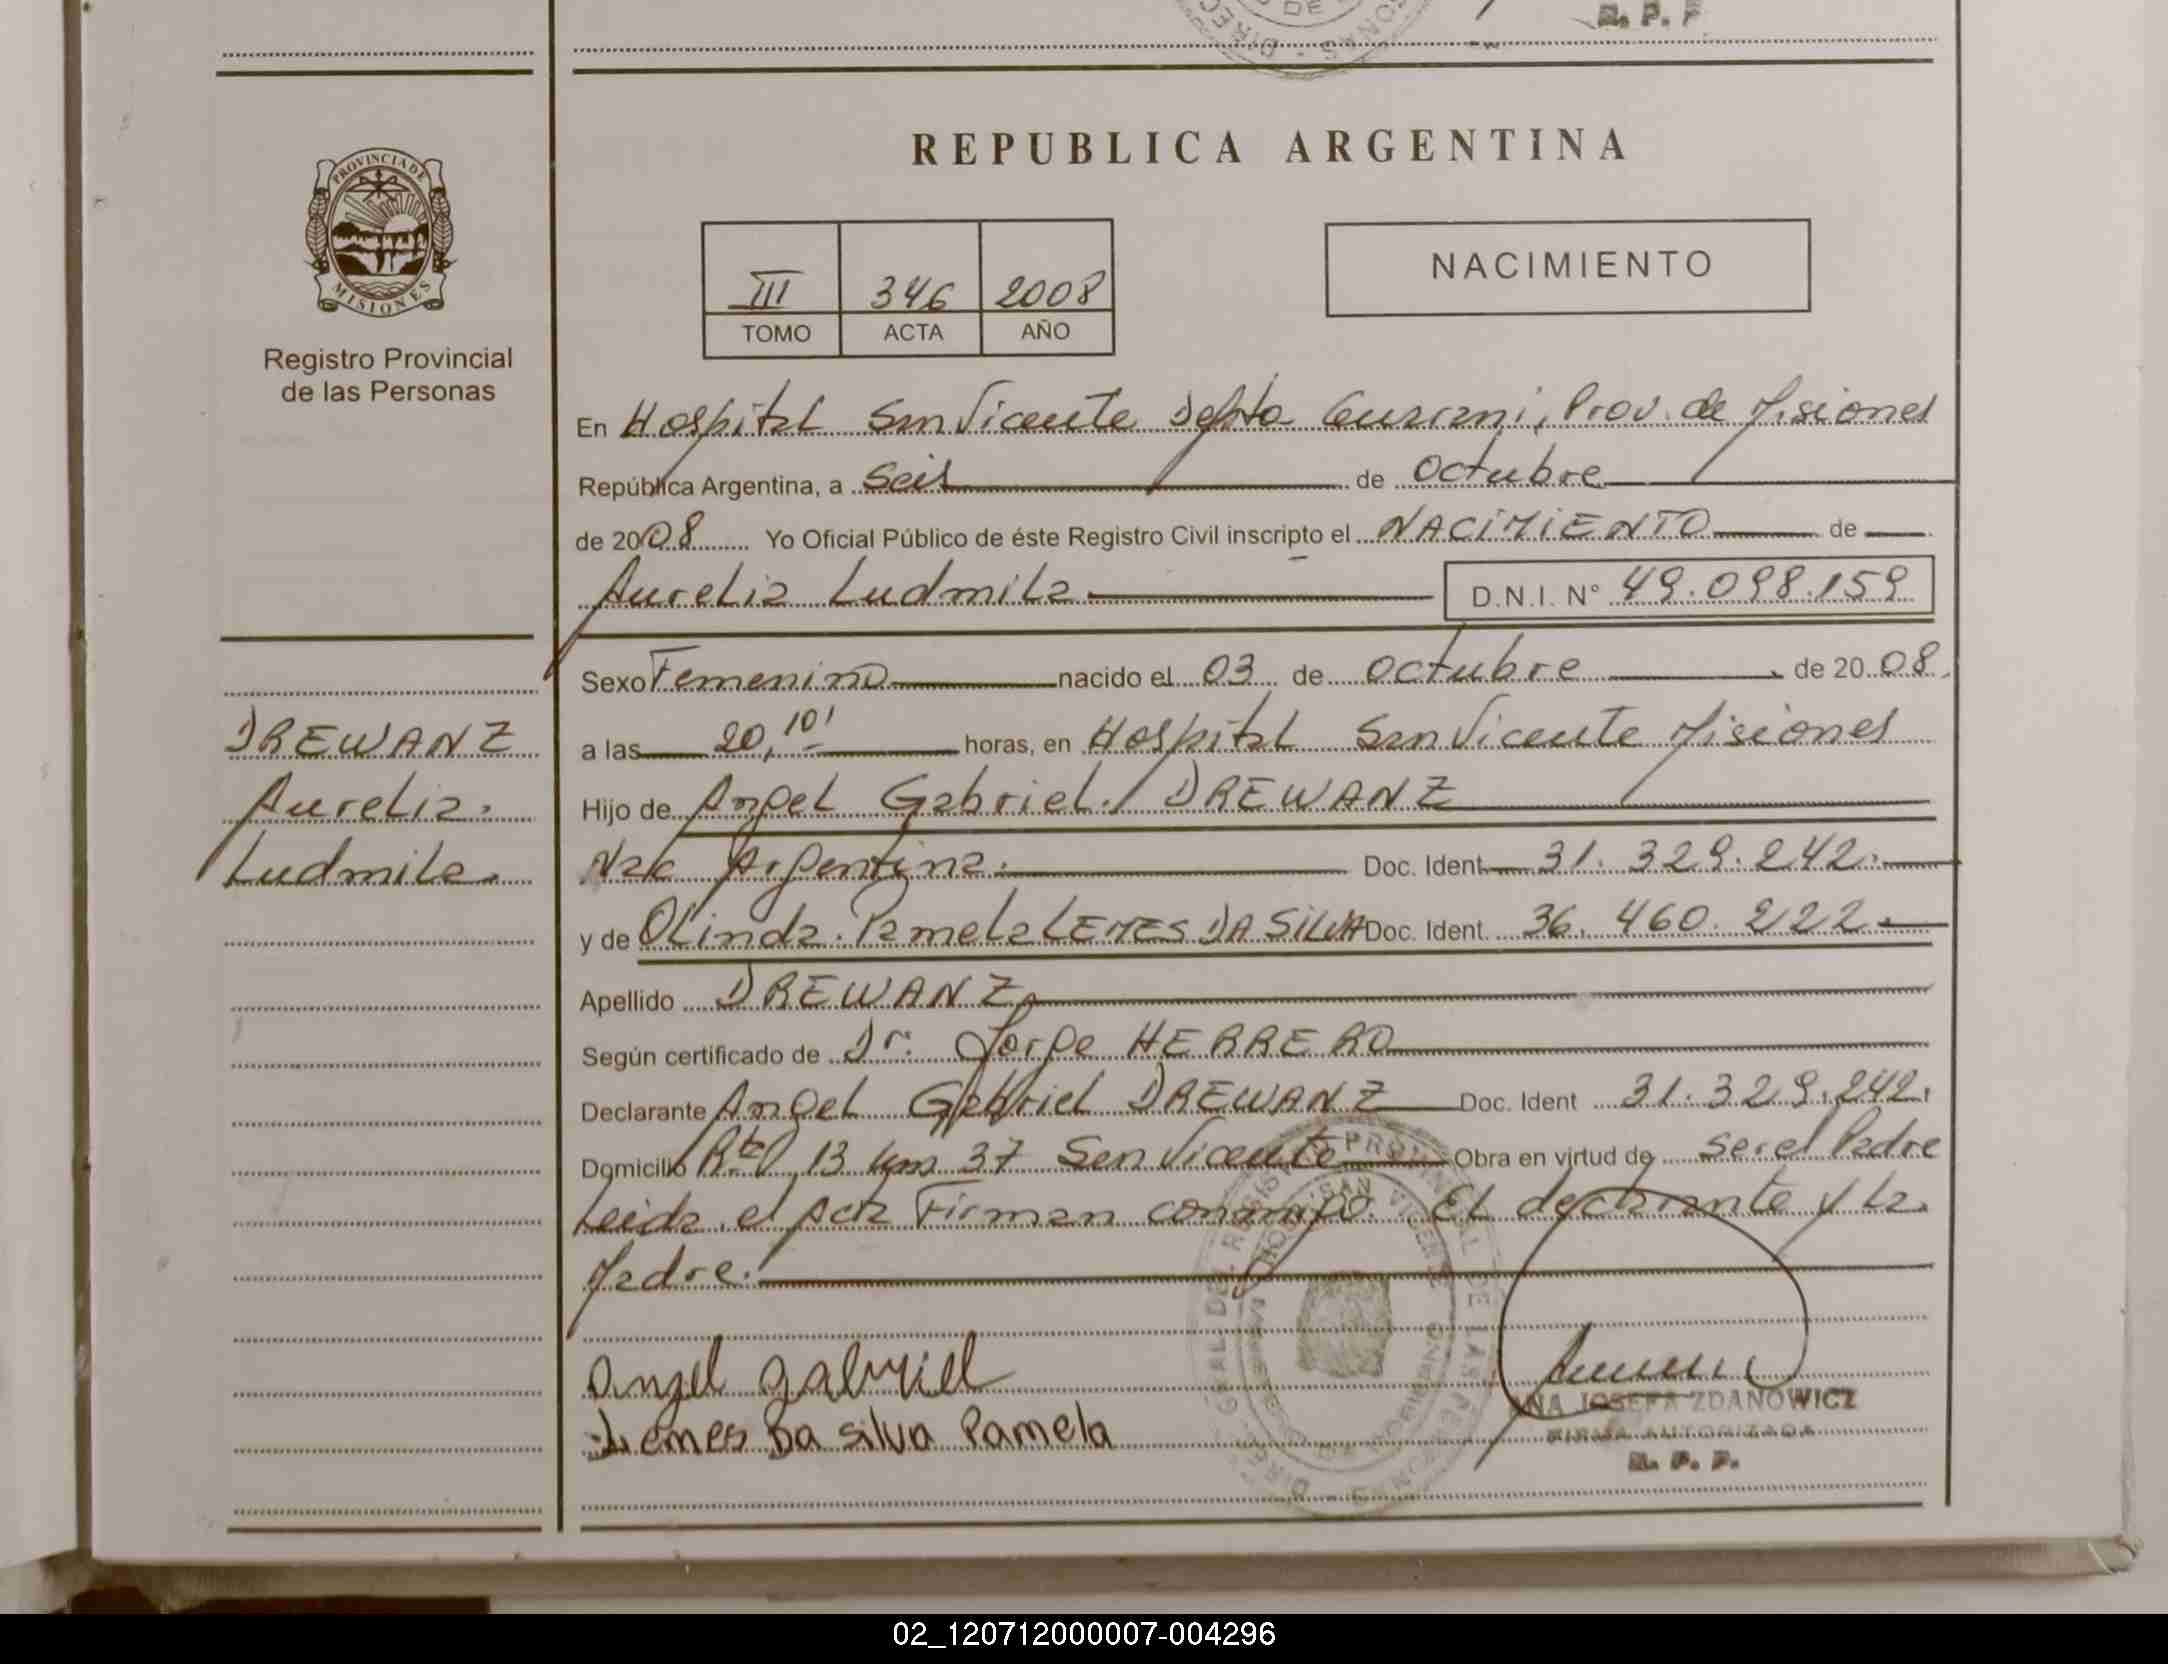 REPUBLICA ARGENTINA
PROVINCIA DE
MISIONES
Registro Provincial
de las Personas
III 346 2008
TOMO ACTA AÑO
NACIMIENTO
En Hospital San Vicente Depto Guarani, Prov. de Misiones
República Argentina, a Seis de Octubre
de 2008 Yo Oficial Público de éste Registro Civil inscripto el NACIMIENTO de
Aurelia Ludmila D.N.I. N° 49.098.159
Sexo Femenino nacido el 03 de Octubre de 20 08.
a las 20,10' horas, en Hospital San Vicente Misiones
Hijo de Angel Gabriel. DREWANZ
Nac Argentina. Doc. Ident 31.329.242.
y de Olinda. Pamela LEMES DA SILVA Doc. Ident. 36.460.222.
Apellido DREWANZ
Según certificado de Dr. Jorge HERRERO
Declarante Angel Gabriel DREWANZ Doc. Ident 31.329.242.
Domicilio Rta 13 km 37 San Vicente Obra en virtud de ser el Padre
Leida el Acta Firman conmigo. El declarante y la
Madre.
DREWANZ
Aurelia.
Ludmila.
angel gabriel
Lemes Da silva Pamela
ANA JOSEFA ZDANOWICZ
FIRMA AUTORIZADA
R. P. P.
02_120712000007-004296